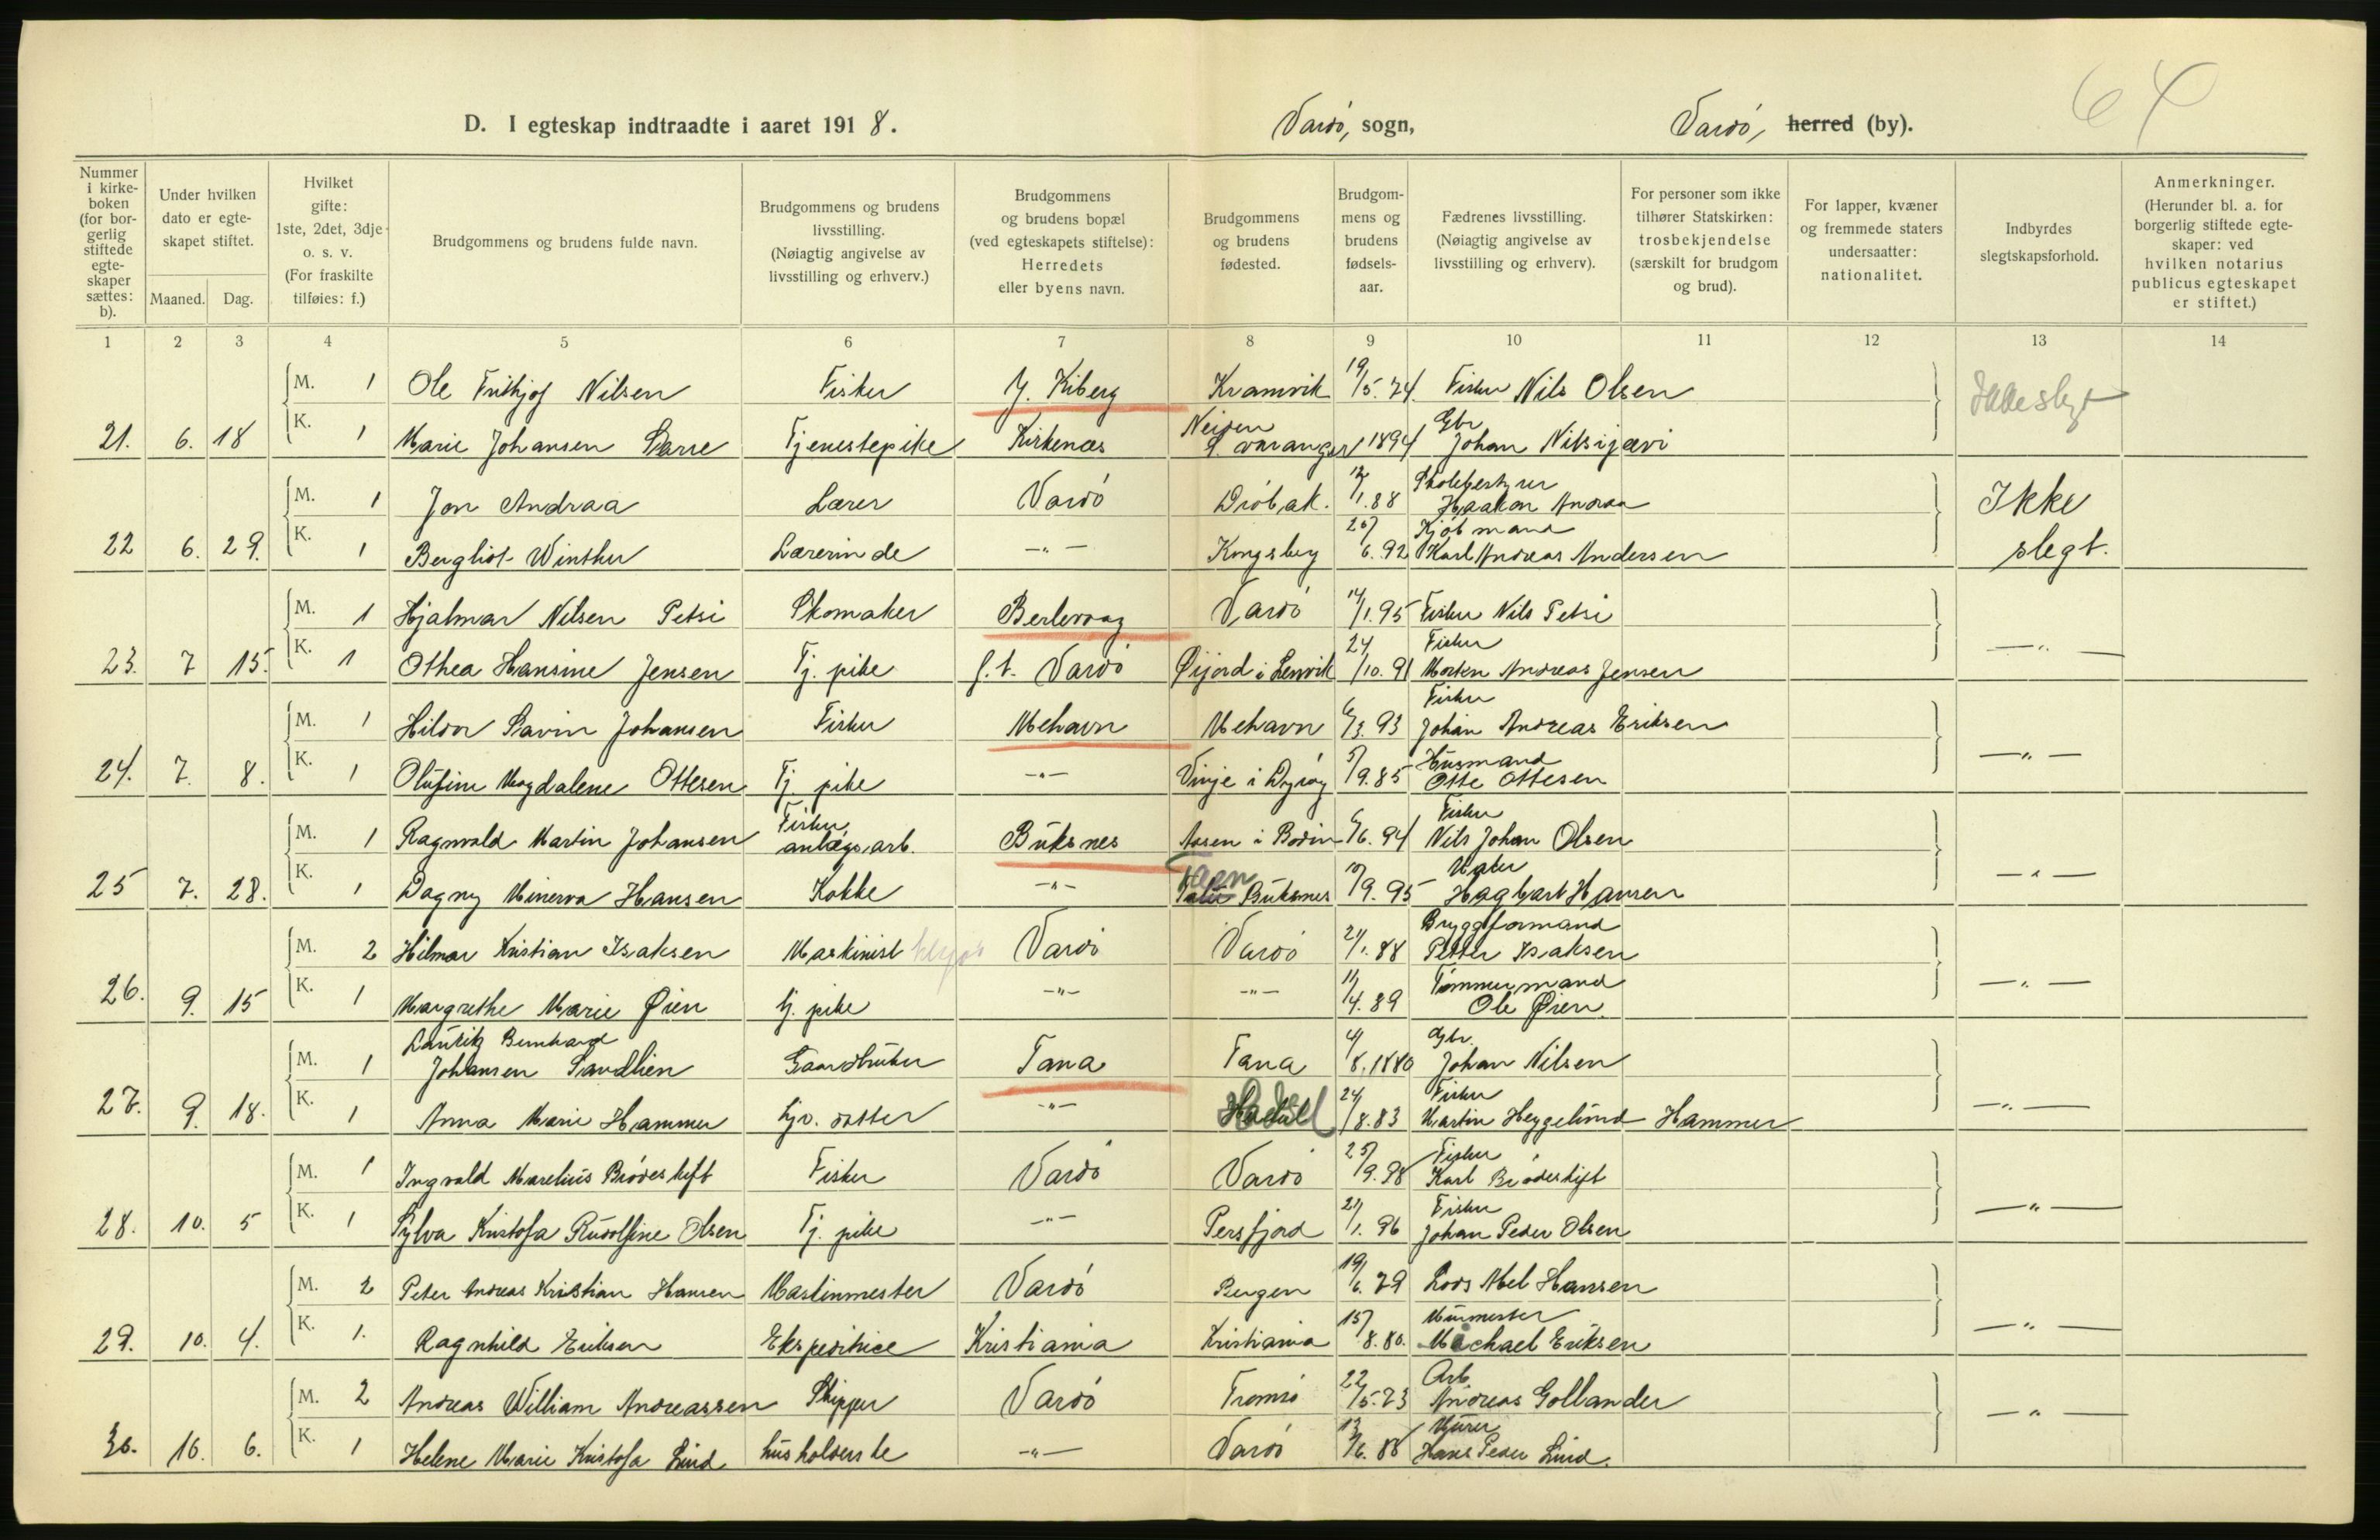 64
D. I egteskap indtraadte i aaret 1918. Vardö, sogn, Vardö, herred (by).
Nummer i kirkeboken (for borgerlig stiftede egteskaper sættes: b).
Under hvilken dato er egteskapet stiftet.
Maaned. Dag.
Hvilket gifte: 1ste, 2det, 3dje o. s. v. (For fraskilte tilføies: f.)
Brudgommens og brudens fulde navn.
Brudgommens og brudens livsstilling. (Nøiagtig angivelse av livsstilling og erhverv.)
Brudgommens og brudens bopæl (ved egteskapets stiftelse): Herredets eller byens navn.
Brudgommens og brudens fødested.
Brudgommens og brudens fødselsaar.
Fædrenes livsstilling. (Nøiagtig angivelse av livsstilling og erhverv).
For personer som ikke tilhører Statskirken: trosbekjendelse (særskilt for brudgom og brud).
For lapper, kvæner og fremmede staters undersaatter: nationalitet.
Indbyrdes slegtskapsforhold.
Anmerkninger. (Herunder bl. a. for borgerlig stiftede egteskaper: ved hvilken notarius publicus egteskapet er stiftet.)
1 2 3 4 5 6 7 8 9 10 11 12 13 14
M. 1 Ole Frithjof Nilsen Fisker Kiberg Kramvik 19/5.74 Fisker Nils Olsen Ikke slegt
21. 6. 18 K. 1 Marie Johansen Tjenestepike Kirkenæs Neiden S. varanger 1894 Gbr Johan
M. 1 Jon Andraa Lærer Vardö Dröbak. 12/1.88 Skolebestyrer Haakon Andraa Ikke
22 6. 29. K. 1 Bergliot Winther Lærerinde -"- Kongsberg 26/6.92 Kjöbmand Karl Andreas Andersen slegt.
M. 1 Hjalmar Nilsen Petsi Skomaker Berlevaag Vardö 14/1.95 Fisker Nils Petsi
23. 7 15. K. 1 Othea Hansine Jensen Tj. pike f.t. Vardö Øijord i Lenvik 24/10.91 Fisker Morten Andreas Jensen -"-
M. 1 Hildor Johansen Fisker Mehavn Mehavn 6/3.93 Fisker Johan Andreas Eriksen
24. 7. 8. K. 1 Olufine Magdalene Ottesen Tj. pike -"- Vinje i Dyröy 5/9.85 Husmand Otte Ottesen -"-
M. 1 Ragnvald Martin Johansen Fisker anlægsarb. Buksnes Aasen i Bodin 6/6.94 Fisker Nils Johan Olsen
25 7. 28. K. 1 Dagny Minerva Hansen Kokke -"- Buksnes 10/9.95 Maler Hagbart Hansen -"-
M. 2 Hilmar Kristian Isaksen Maskinist Vardö Vardö 21/1.88 Bryggeformand Petter Isaksen
26. 9. 15 K. 1 Margrethe Marie Øien tj. pike -"- -"- 11/4.89 Tömmermand Ole Øien. -"-
M. 1 Lauritz Bernhard Johansen Sandlien Gaardbruker Tana Tana 4/8.1880 Gbr. Johan Nilsen
27. 9. 18. K. 1 Anna Marie Hammer Gjv. datter -"- Hadsel 24/8.83 Fisker Martin Heggelund Hammer -"-
M. 1 Ingvald Marelius Brödeskift Fisker Vardö Vardö 25/9.98 Fisker Karl Brödeskift
28. 10. 5 K. 1 Sylva Kristofa Rudolfine Olsen Tj. pike -"- Persfjord 21/1.96 Fisker Johan Peder Olsen -"-
M. 2 Peter Andreas Kristian Hansen Maskinmester Vardö Bergen 19/6.79 Lods Abel Hansen
29. 10. 4. K. 1. Ragnhild Eriksen Ekspeditrice Kristiania Kristiania 15/8.80. Murmester Michael Eriksen -"-
M. 2 Andreas William Andreassen Skipper Vardö Tromsö 22/5.73 Arb. Andreas Gollander
30. 10. 6. K. 1 Helene Marie Kristofa Lind husholderske -"- Vardö 13/6.88 Murer Hans Peder Lind. -"-